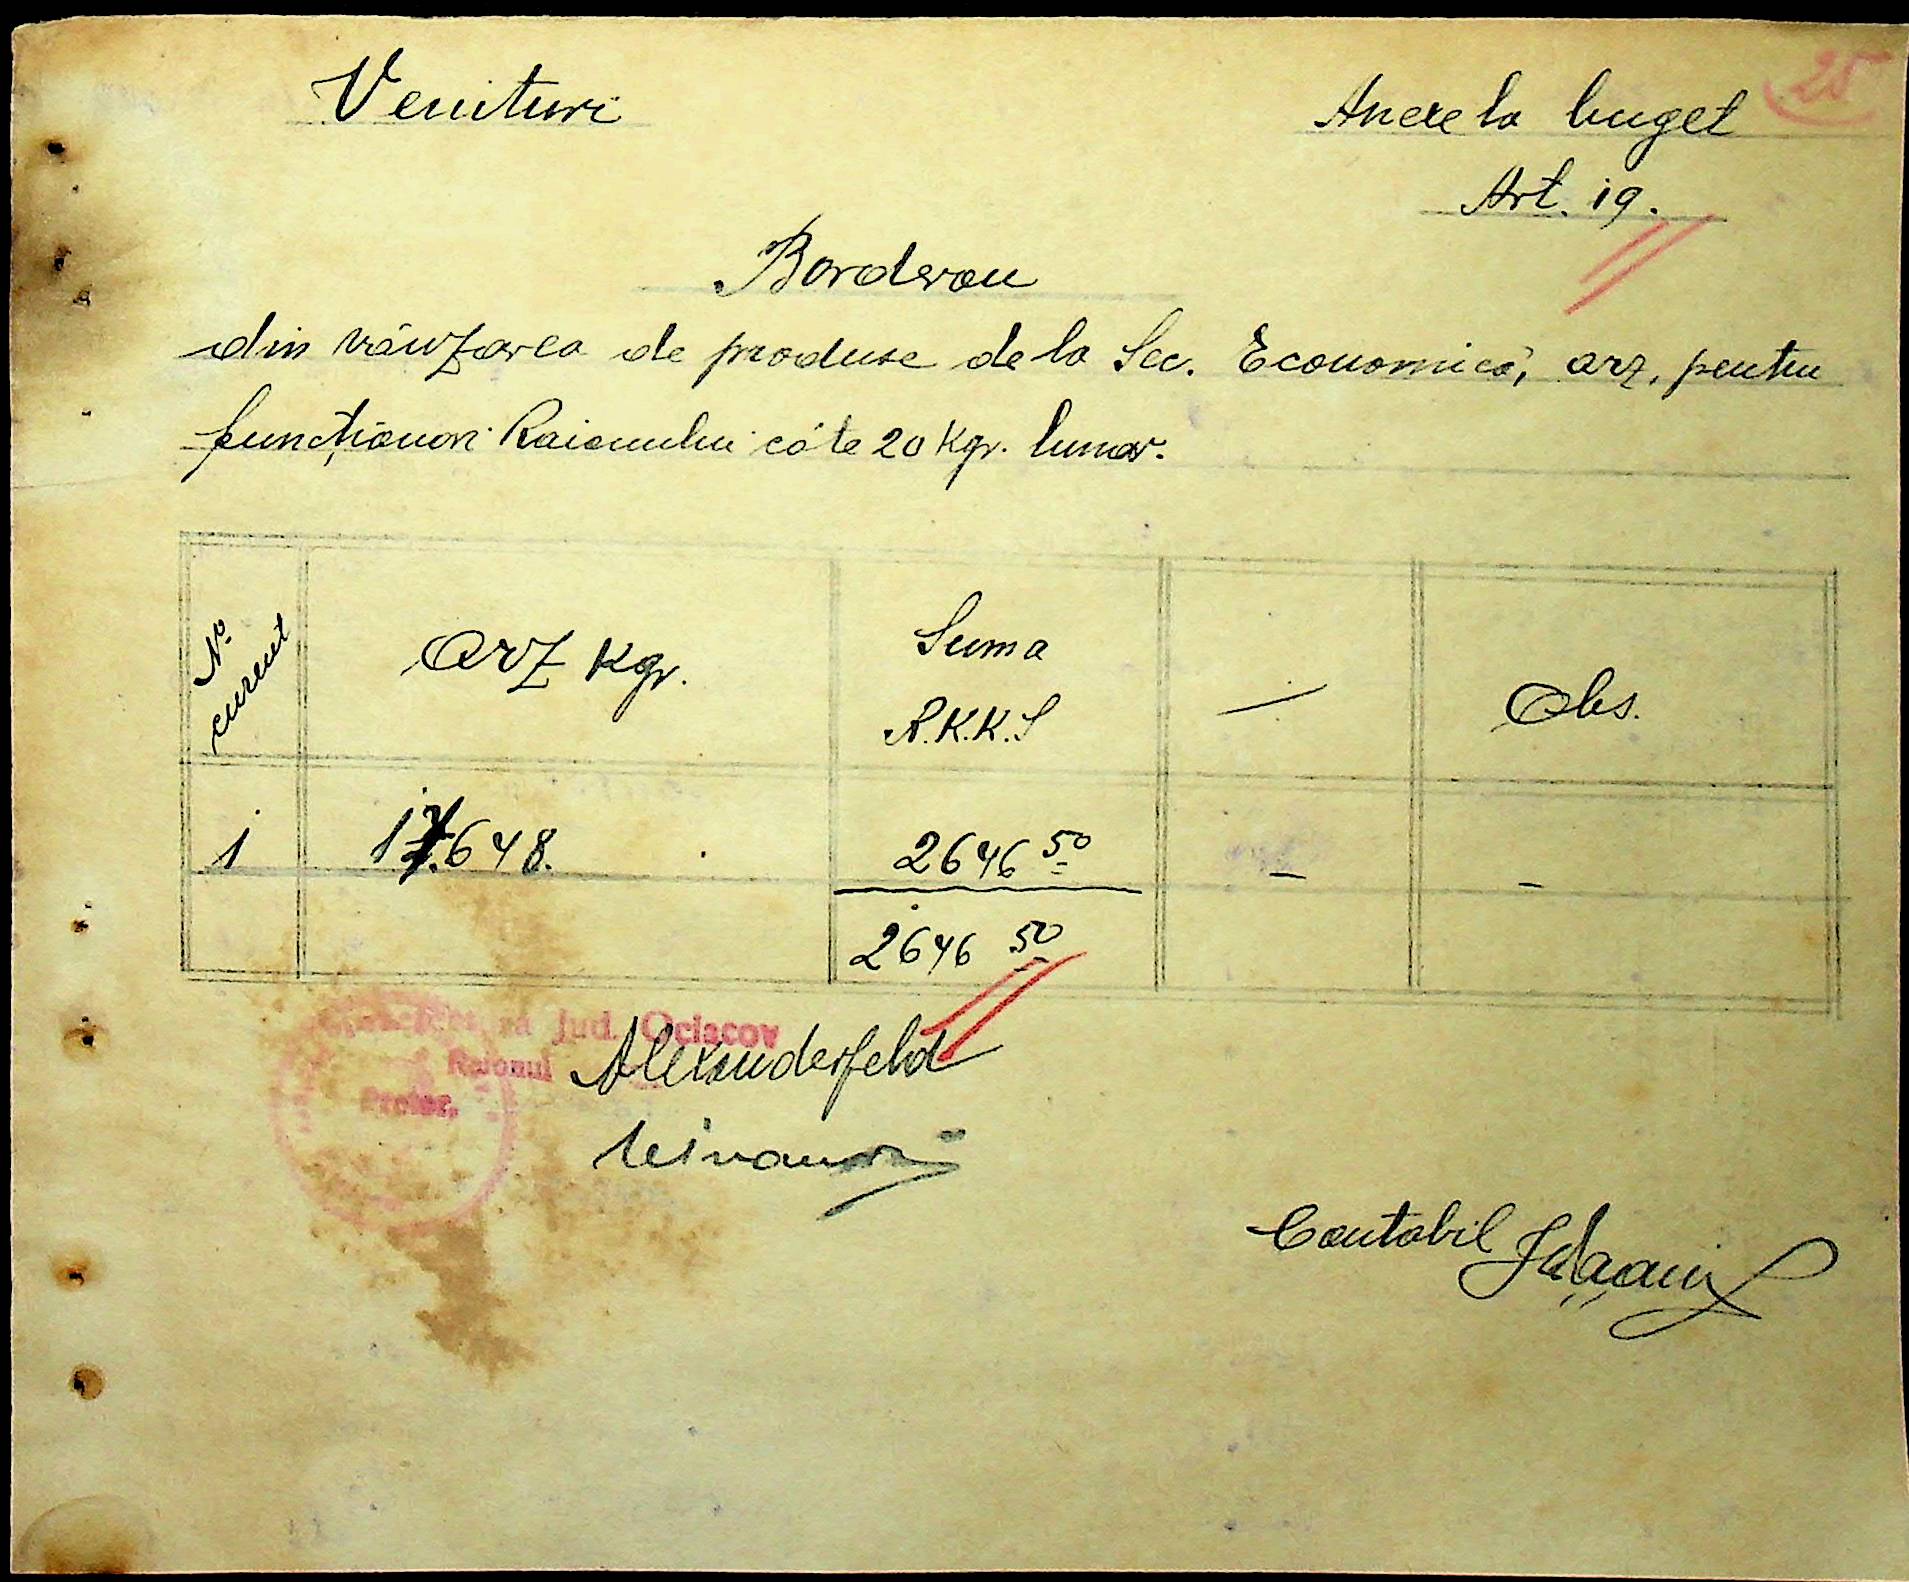 25
Venituri
Anexe la buget
Art. 19.
Borderou
din vânzarea de produse de la Sec. Economică, arz, pentru
funcționari Raionului câte 20 Kgr. lunar.
No curent
Arz Kgr.
Suma
R.K.K.S
—
Obs.
1
17.648.
2646 50
—
—
2646 50
Jud. Ociacov
Raionul Alexanderfeld
Pretor,
Contabil